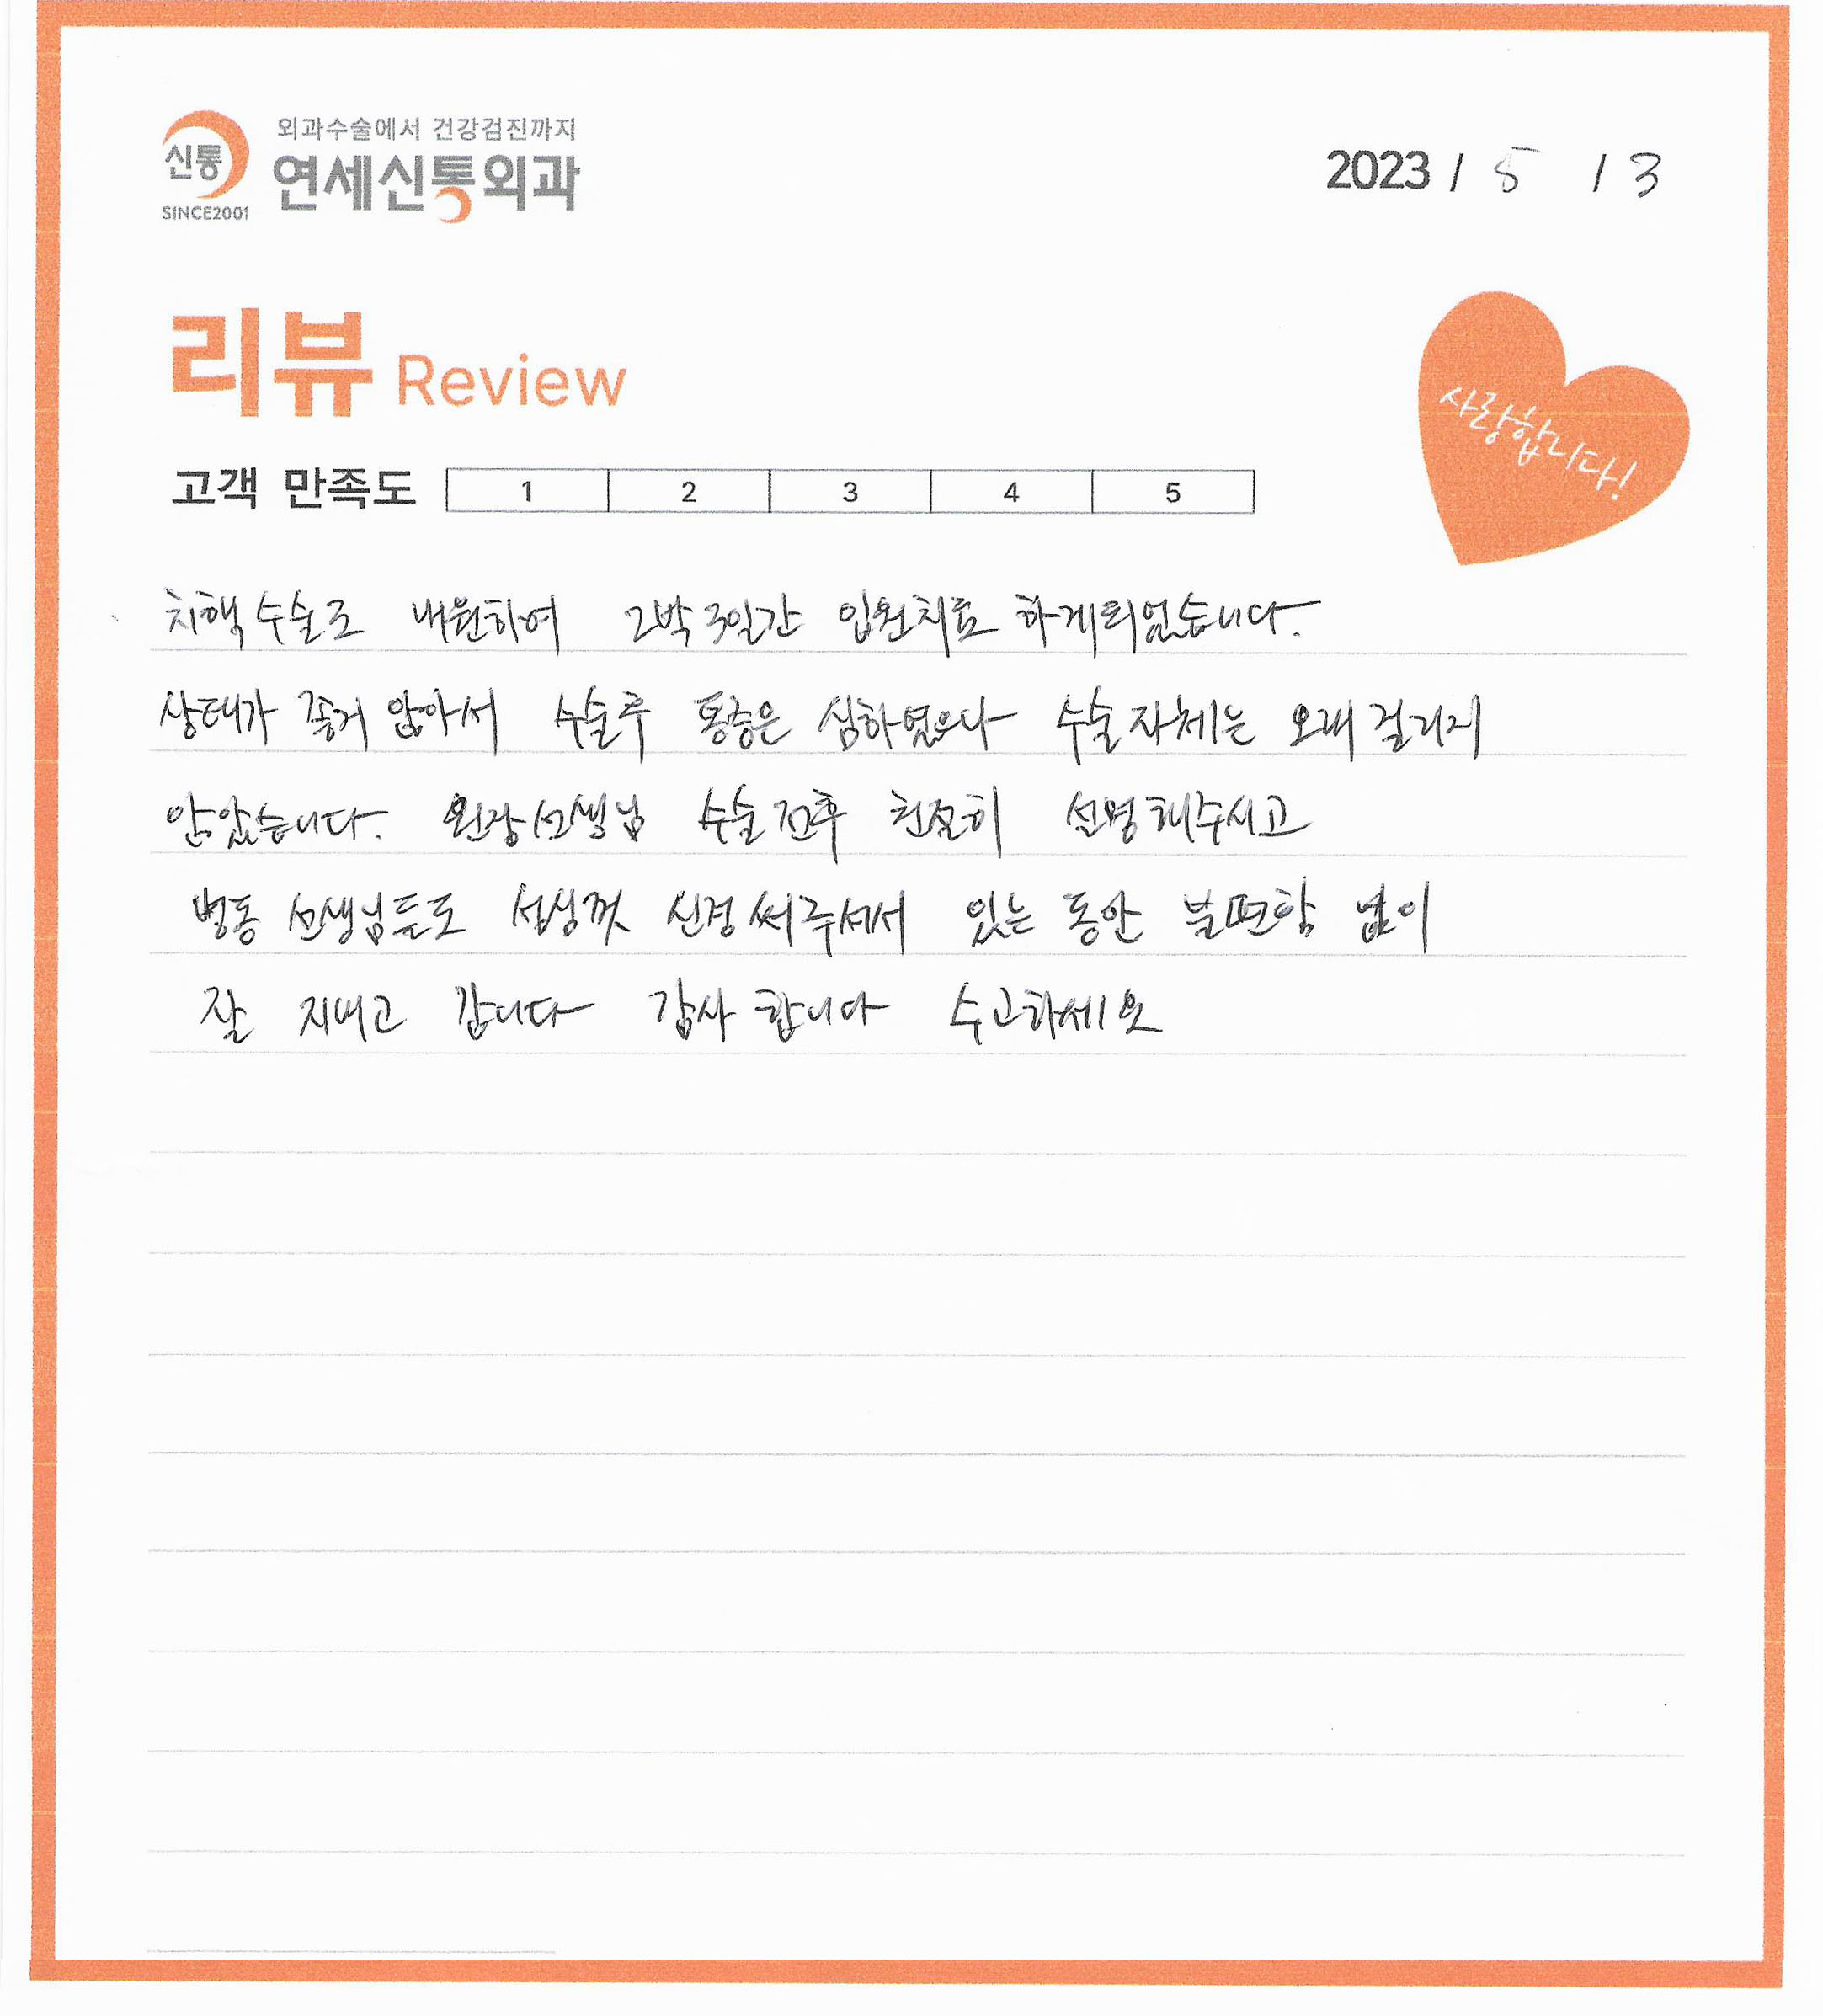 외과수술에서 건강검진까지
신통 연세신통외과
SINCE2001
2023 / 5 / 3
리뷰 Review
사랑합니다!
고객 만족도 1 2 3 4 5
치핵 수술로 내원하여 2박 3일간 입원치료 하게되었습니다.
상태가 좋지 않아서 수술후 통증은 심하였으나 수술자체는 오래 걸리지
않았습니다. 원장선생님 수술전후 친절히 설명해주시고
병동 선생님들도 성심껏 신경써주셔서 있는 동안 불편함 없이
잘 지내고 갑니다 감사 합니다 수고하세요